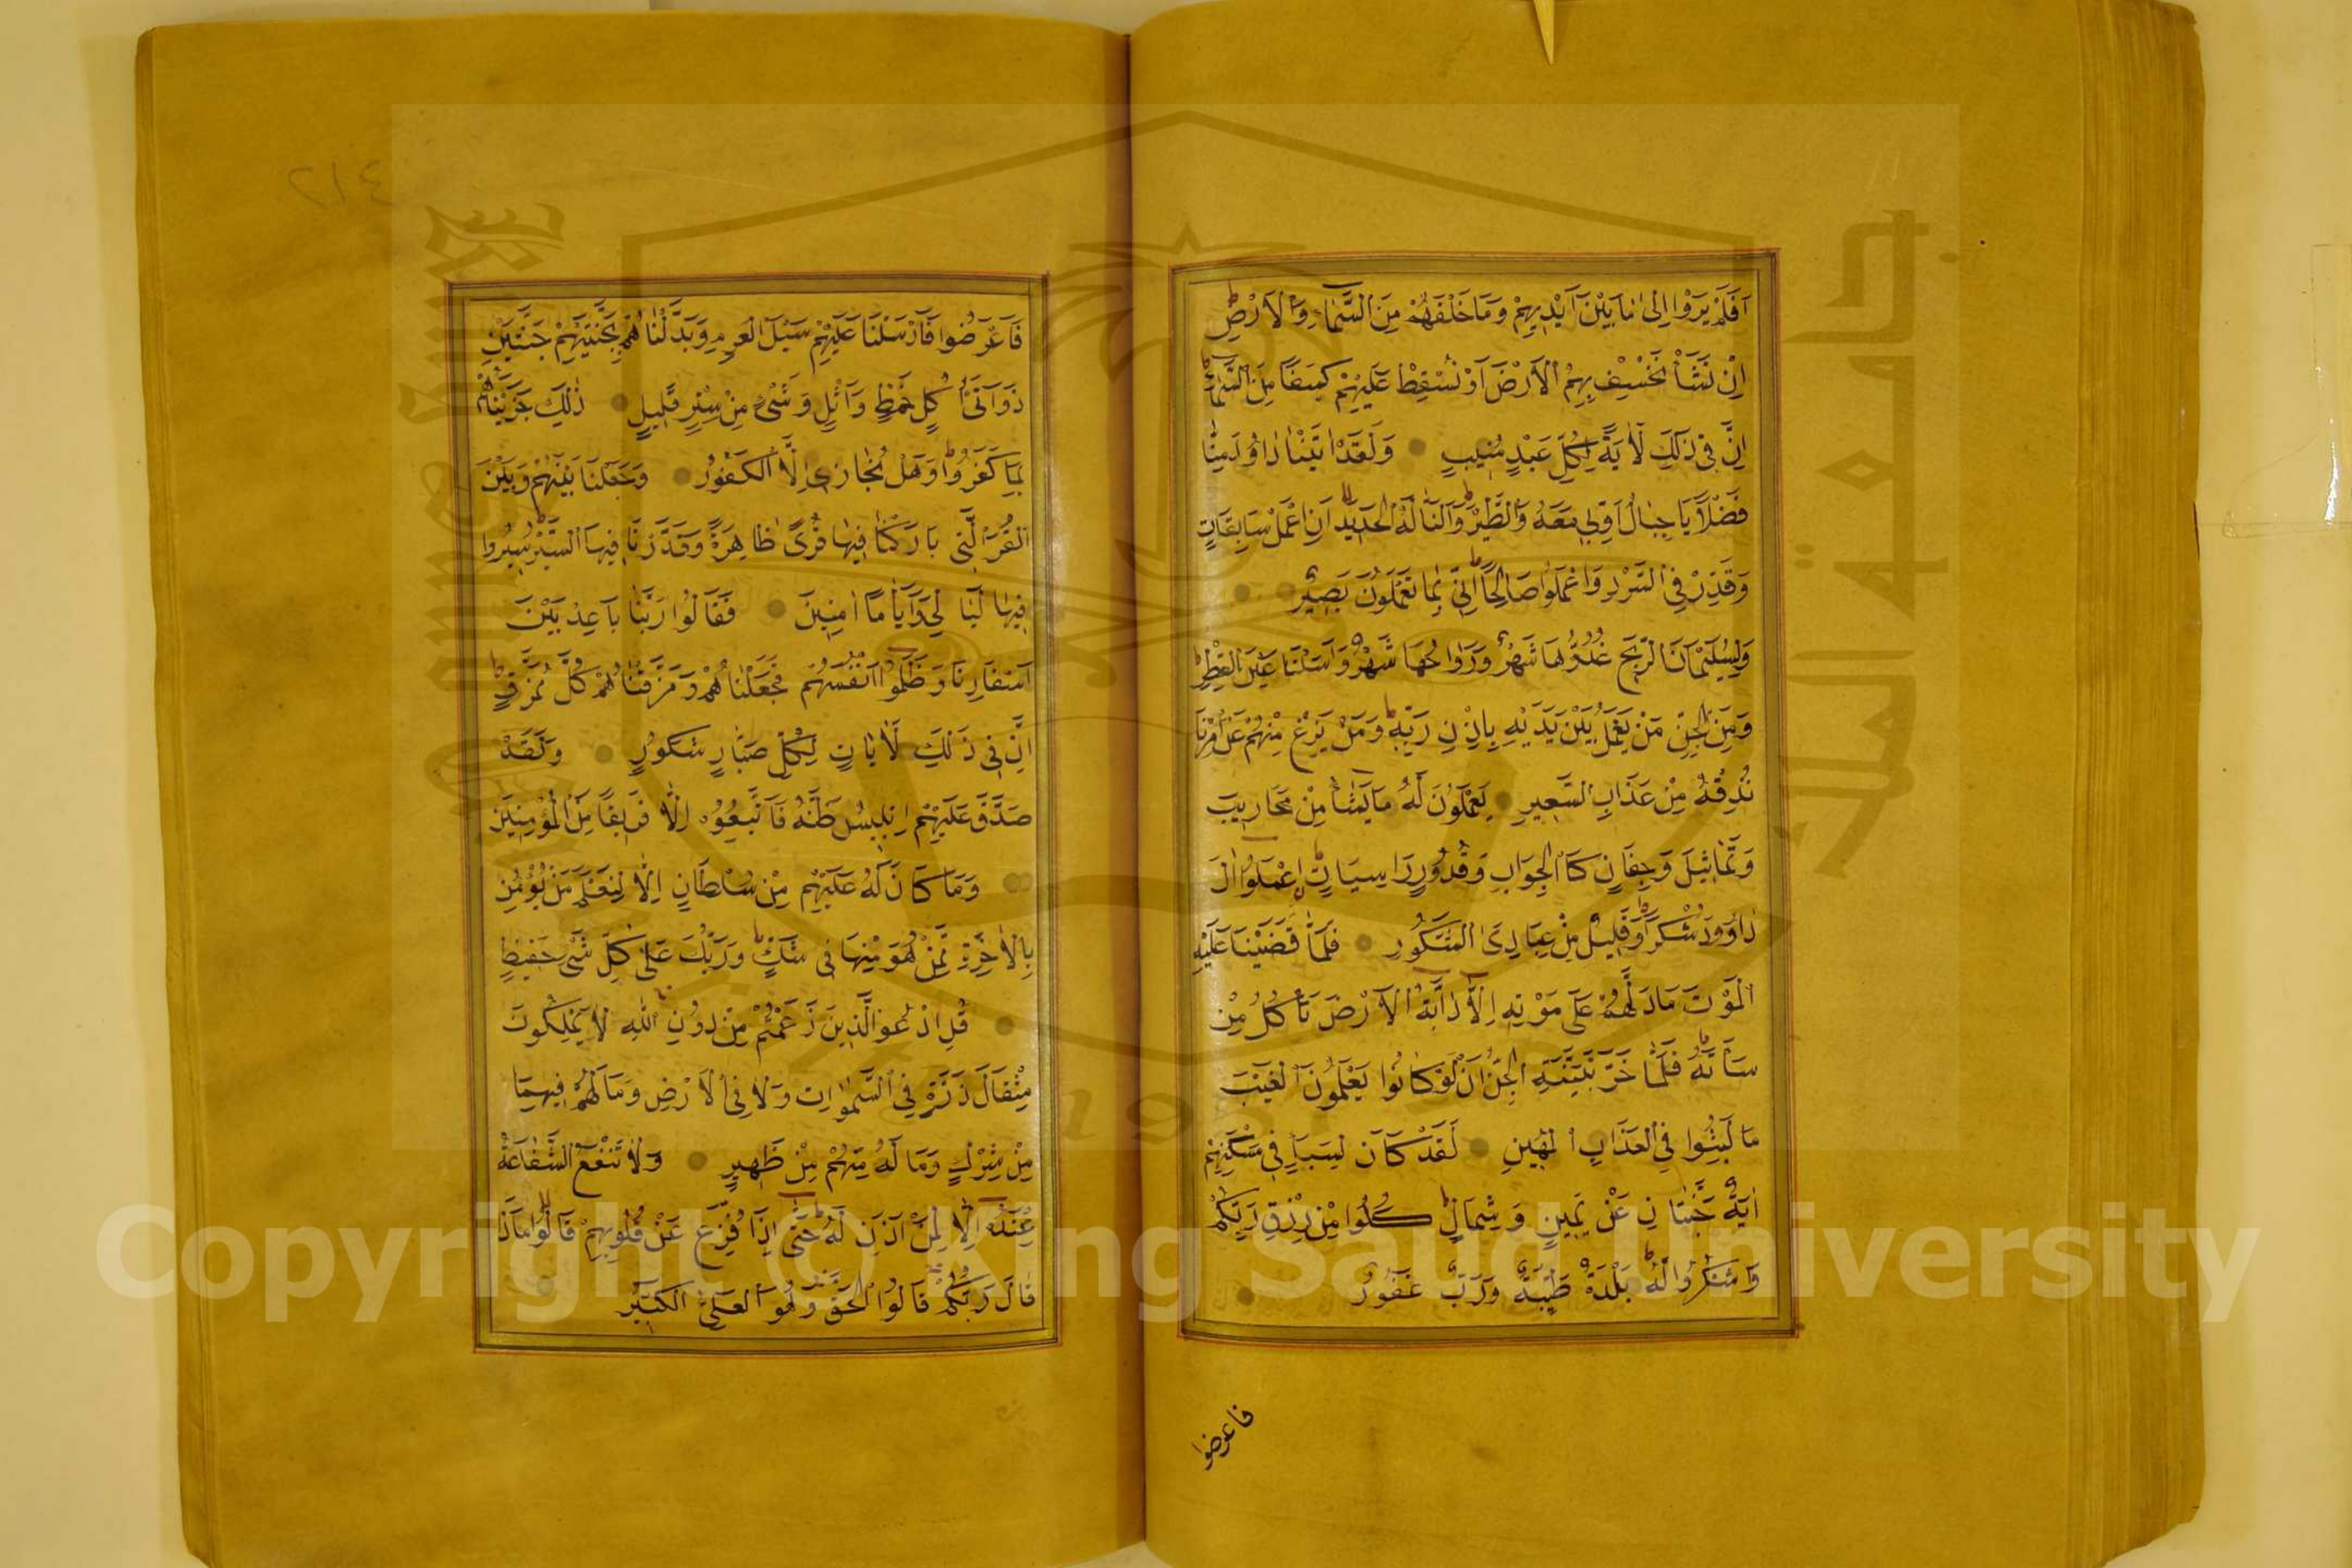 اَفَلَمْ يَرَوْا اِلٰى مَا بَيْنَ اَيْدِيهِمْ وَمَا خَلْفَهُمْ مِنَ السَّمَاءِ وَالْاَرْضِ
اِنْ نَشَأْ نَخْسِفْ بِهِمُ الْاَرْضَ اَوْ نُسْقِطْ عَلَيْهِمْ كِسَفًا مِنَ السَّمَاءِ
اِنَّ فِى ذٰلِكَ لَاٰيَةً لِكُلِّ عَبْدٍ مُنِيبٍ وَلَقَدْ اٰتَيْنَا دَاوُدَ مِنَّا
فَضْلًا يَا جِبَالُ اَوِّبِى مَعَهُ وَالطَّيْرَ وَاَلَنَّا لَهُ الْحَدِيدَ اَنِ اعْمَلْ سَابِغَاتٍ
وَقَدِّرْ فِى السَّرْدِ وَاعْمَلُوا صَالِحًا اِنِّى بِمَا تَعْمَلُونَ بَصِيرٌ
وَلِسُلَيْمَانَ الرِّيحَ غُدُوُّهَا شَهْرٌ وَرَوَاحُهَا شَهْرٌ وَاَسَلْنَا عَيْنَ الْقِطْرِ
وَمِنَ الْجِنِّ مَنْ يَعْمَلُ بَيْنَ يَدَيْهِ بِاِذْنِ رَبِّهِ وَمَنْ يَزِغْ مِنْهُمْ عَنْ اَمْرِنَا
نُذِقْهُ مِنْ عَذَابِ السَّعِيرِ يَعْمَلُونَ لَهُ مَا يَشَاءُ مِنْ مَحَارِيبَ
وَتَمَاثِيلَ وَجِفَانٍ كَالْجَوَابِ وَقُدُورٍ رَاسِيَاتٍ اِعْمَلُوا اٰلَ
دَاوُودَ شُكْرًا وَقَلِيلٌ مِنْ عِبَادِىَ الشَّكُورُ فَلَمَّا قَضَيْنَا عَلَيْهِ
الْمَوْتَ مَا دَلَّهُمْ عَلٰى مَوْتِهِ اِلَّا دَابَّةُ الْاَرْضِ تَأْكُلُ مِنْ
سَأَتَهُ فَلَمَّا خَرَّ تَبَيَّنَتِ الْجِنُّ اَنْ لَوْ كَانُوا يَعْلَمُونَ الْغَيْبَ
مَا لَبِثُوا فِى الْعَذَابِ الْمُهِينِ لَقَدْ كَانَ لِسَبَاٍ فِى مَسْكَنِهِمْ
اٰيَةٌ جَنَّتَانِ عَنْ يَمِينٍ وَشِمَالٍ كُلُوا مِنْ رِزْقِ رَبِّكُمْ
وَاشْكُرُوا لَهُ بَلْدَةٌ طَيِّبَةٌ وَرَبٌّ غَفُورٌ
فاعرضوا
٤١٢
فَاَعْرَضُوا فَاَرْسَلْنَا عَلَيْهِمْ سَيْلَ الْعَرِمِ وَبَدَّلْنَاهُمْ بِجَنَّتَيْهِمْ جَنَّتَيْنِ
ذَوَاتَىْ اُكُلٍ خَمْطٍ وَاَثْلٍ وَشَىْءٍ مِنْ سِدْرٍ قَلِيلٍ ذٰلِكَ جَزَيْنَاهُمْ
بِمَا كَفَرُوا وَهَلْ نُجَازِى اِلَّا الْكَفُورَ وَجَعَلْنَا بَيْنَهُمْ وَبَيْنَ
الْقُرَى الَّتِى بَارَكْنَا فِيهَا قُرًى ظَاهِرَةً وَقَدَّرْنَا فِيهَا السَّيْرَ سِيرُوا
فِيهَا لَيَالِىَ وَاَيَّامًا اٰمِنِينَ فَقَالُوا رَبَّنَا بَاعِدْ بَيْنَ
اَسْفَارِنَا وَظَلَمُوا اَنْفُسَهُمْ فَجَعَلْنَاهُمْ وَمَزَّقْنَاهُمْ كُلَّ مُمَزَّقٍ
اِنَّ فِى ذٰلِكَ لَاٰيَاتٍ لِكُلِّ صَبَّارٍ شَكُورٍ وَلَقَدْ
صَدَّقَ عَلَيْهِمْ اِبْلِيسُ ظَنَّهُ فَاتَّبَعُوهُ اِلَّا فَرِيقًا مِنَ الْمُؤْمِنِينَ
وَمَا كَانَ لَهُ عَلَيْهِمْ مِنْ سُلْطَانٍ اِلَّا لِنَعْلَمَ مَنْ يُؤْمِنُ
بِالْاٰخِرَةِ مِمَّنْ هُوَ مِنْهَا فِى شَكٍّ وَرَبُّكَ عَلٰى كُلِّ شَىْءٍ حَفِيظٌ
قُلِ ادْعُوا الَّذِينَ زَعَمْتُمْ مِنْ دُونِ اللّٰهِ لَا يَمْلِكُونَ
مِثْقَالَ ذَرَّةٍ فِى السَّمٰوَاتِ وَلَا فِى الْاَرْضِ وَمَا لَهُمْ فِيهِمَا
مِنْ شِرْكٍ وَمَا لَهُ مِنْهُمْ مِنْ ظَهِيرٍ وَلَا تَنْفَعُ الشَّفَاعَةُ
عِنْدَهُ اِلَّا لِمَنْ اَذِنَ لَهُ حَتّٰى اِذَا فُزِّعَ عَنْ قُلُوبِهِمْ قَالُوا مَاذَا
قَالَ رَبُّكُمْ قَالُوا الْحَقَّ وَهُوَ الْعَلِىُّ الْكَبِيرُ
Copyright © King Saud University